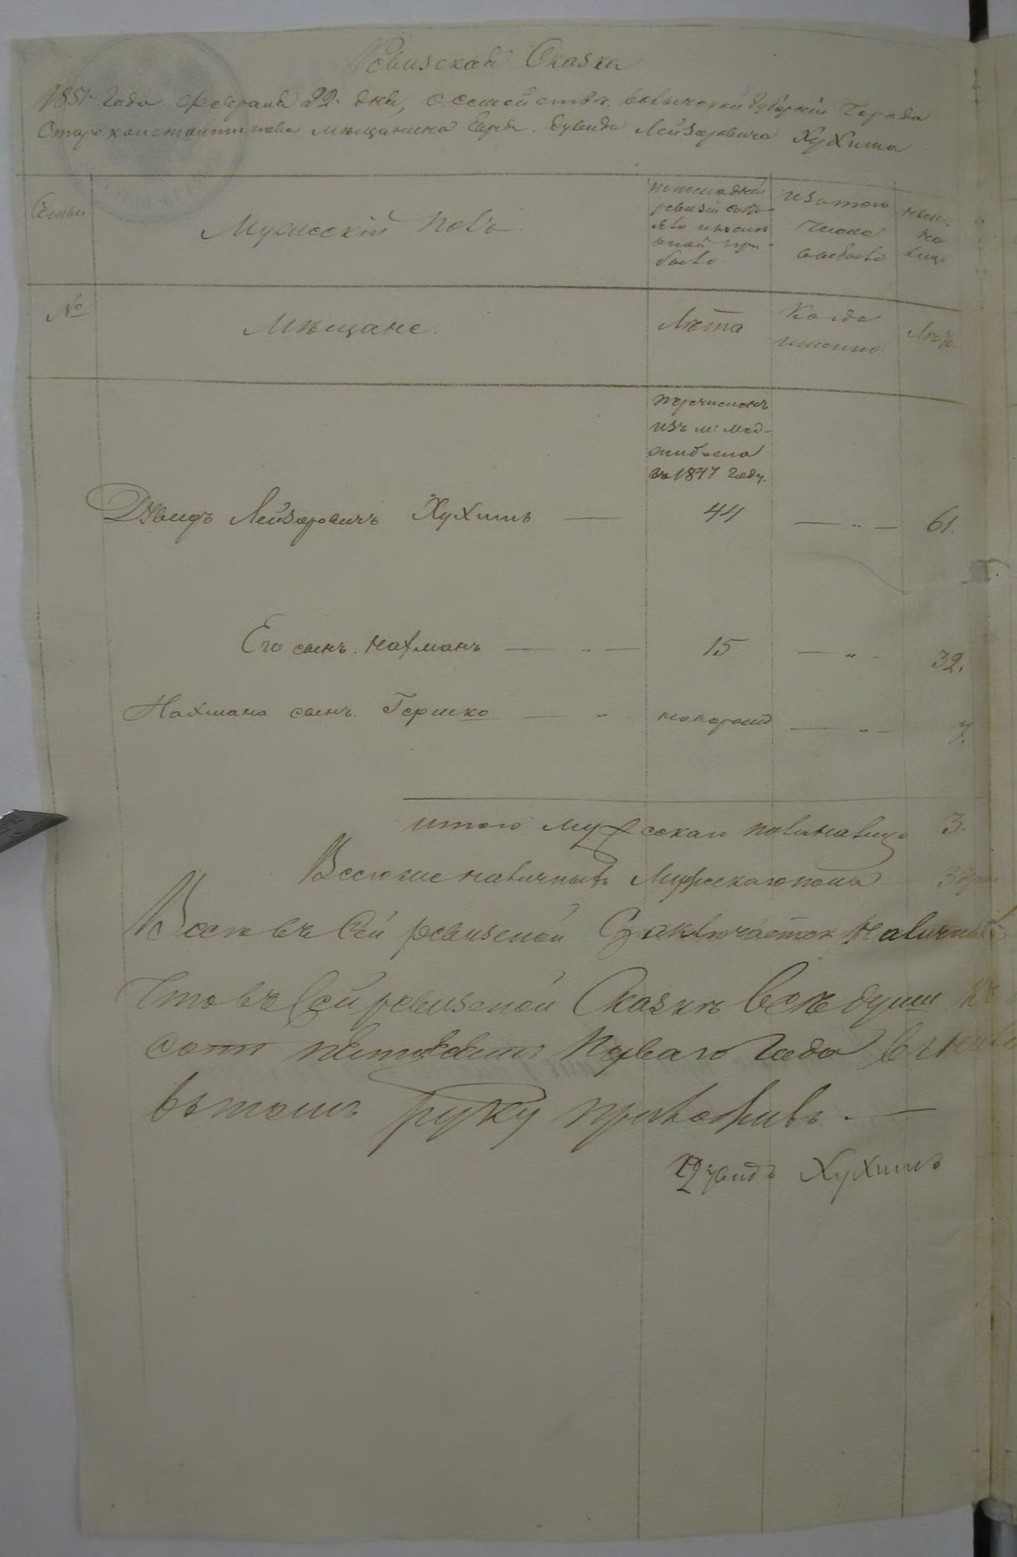 Ревизская Сказка
1851 года февраля 22 дня, о семействе Волынской Губернии Города
Старо константинова мещанина Еврея Дувида Лейзоровича Хухима
Семьи
Мужескій Полъ
По последней
ревизіи состояло и после
оной при
было
Изъ того
числа
выбыло
Ныне
на
лицо
№
Мѣщане.
Лѣта
Когда
именно
Лѣта
перечисленъ
изъ м: Мед-
жибожа
въ 1847 году.
Дувидъ Лейзоровичъ Хухимъ — 44 — „ — 61.
Его сынъ Нахманъ — „ — 15 — „ — 32.
Нахмана сынъ Гершко — „ новорожд — „ — 7.
итого мужескаго пола налицо 3.
Всего же наличныхъ Мужескаго пола
въ сей ревизской заключается наличныхъ
Что въ сей ревизской Сказкѣ всѣ души
сотъ пятьдесятъ Перваго Года
въ томъ руку приложилъ. —
Дувидъ Хухимъ